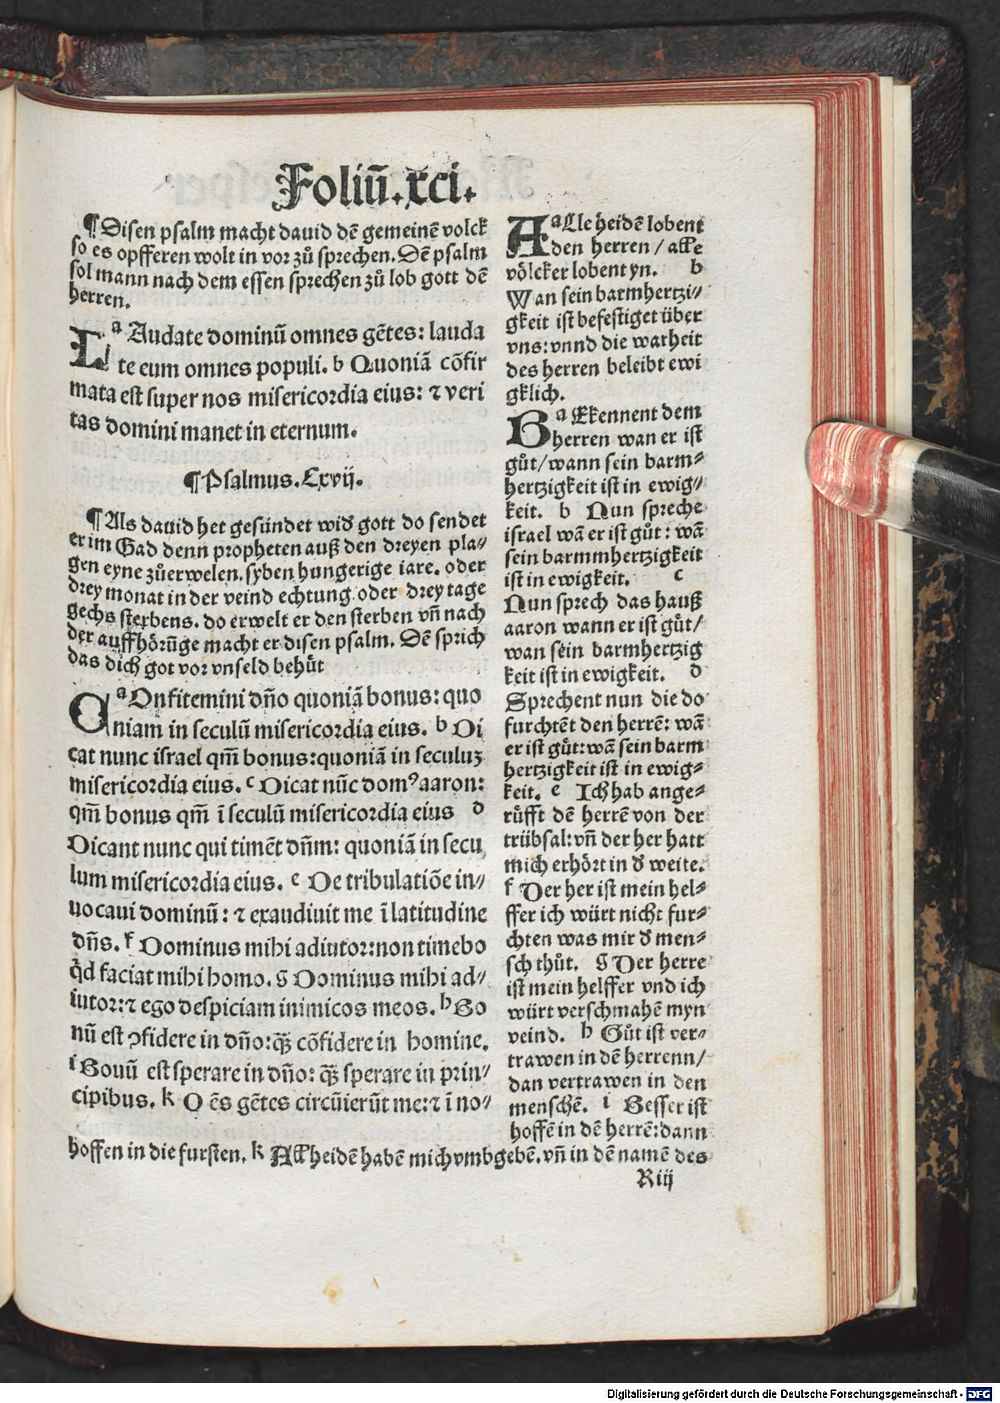 Foliū.xci.
¶ Disen psalm macht dauid dē gemeinē volck
so es opfferen wolt in vor zů sprechen. Dē psalm
sol mann nach dem essen sprechen zů lob gott dē
herren.
L ᵃAudate dominū omnes gētes: lauda
te eum omnes populi. b Quoniā cōfir
mata est super nos misericordia eius: ⁊ veri
tas domini manet in eternum.
¶ Psalmus. Cxvij.
¶ Als dauid het gesündet wiđ gott do sendet
er im Gad denn propheten auß den dreyen pla⸗
gen eyne zůerwelen. syben hungerige iare. oder
drey monat in der veind echtung oder drey tage
gechs sterbens. do erwelt er den sterben vñ nach
der auffhörūge macht er disen psalm. Dē sprich
das dich got vor vnseld behůt
C ᵃOnfitemini dño quoniā bonus: quo
niam in seculū misericordia eius. b Di
cat nunc israel qm̄ bonus: quoniā in seculuꝫ
misericordia eius. c Dicat nūc domꝰ aaron:
qm̄ bonus qm̄ ī seculū misericordia eius d
Dicant nunc qui timēt dñm: quoniā in secu
lum misericordia eius. e De tribulatiōe in⸗
uocaui dominū: ⁊ exaudiuit me ī latitudine
dñs. f Dominus mihi adiutor: non timebo
qď faciat mihi homo. g Dominus mihi ad⸗
iutor: ⁊ ego despiciam inimicos meos. h Bo
nū est ꝯfidere in dño: q̄ꝫ cōfidere in homine.
i Bonū est sperare in dño: q̄ꝫ sperare in prin⸗
cipibus. k O ēs gētes circūierūt me: ⁊ ī no⸗
A ᵃLle heidē lobent
den herren / alle
völcker lobent yn. b
Wan sein barmhertzi⸗
gkeit ist befestiget über
vns: vnnd die warheit
des herren beleibt ewi
gklich.
B ᵃEkennent dem
herren wan er ist
gůt / wann sein barm⸗
hertzigkeit ist in ewig⸗
keit. b Nun spreche
israel wā er ist gůt: wā
sein barmmhertzigkeit
ist in ewigkeit. c
Nun sprech das hauß
aaron wann er ist gůt /
wan sein barmhertzig
keit ist in ewigkeit. d
Sprechent nun die do
furchtēt den herrē: wā
er ist gůt: wā sein barm
hertzigkeit ist in ewig⸗
keit. e Ich hab ange⸗
rüfft dē herrē von der
trübsal: vñ der her hatt
mich erhört in đ weite.
f Der her ist mein hel⸗
ffer ich würt nicht fur⸗
chten was mir đ men⸗
sch thůt. g Der herre
ist mein helffer vnd ich
würt verschmahē myn
veind. h Gůt ist ver⸗
trawen in dē herrenn /
dan vertrawen in den
menschē. i Besser ist
hoffē in dē herrē: dann
hoffen in die fursten. k All heidē habē mich vmbgebē. vñ in dē namē des
Riij
Digitalisierung gefördert durch die Deutsche Forschungsgemeinschaft - DFG